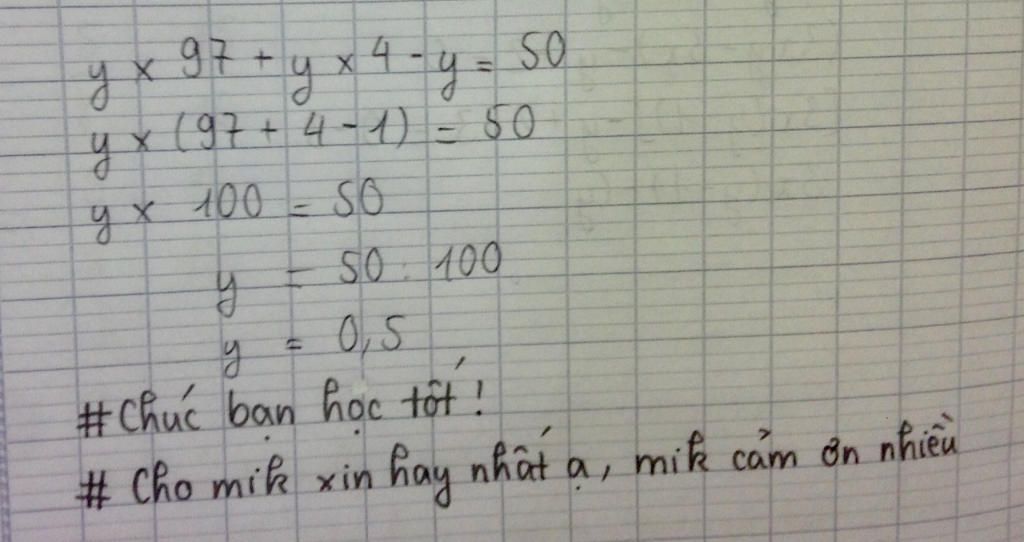 y × 97 + y × 4 - y = 50
y × (97 + 4 - 1) = 50
y × 100 = 50
y = 50 : 100
y = 0,5
# Chúc bạn học tốt!
# Cho mik xin hay nhất ạ, mik cảm ơn nhiều